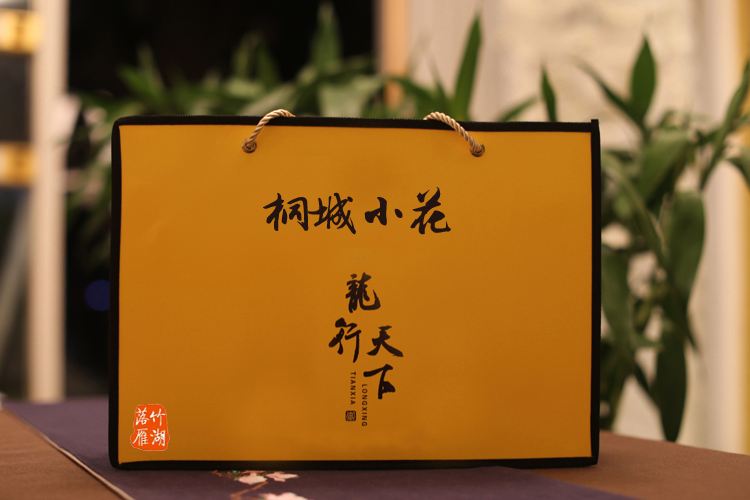 桐城小花
龍行天下
LONGXING
TIANXIA
竹湖
落雁